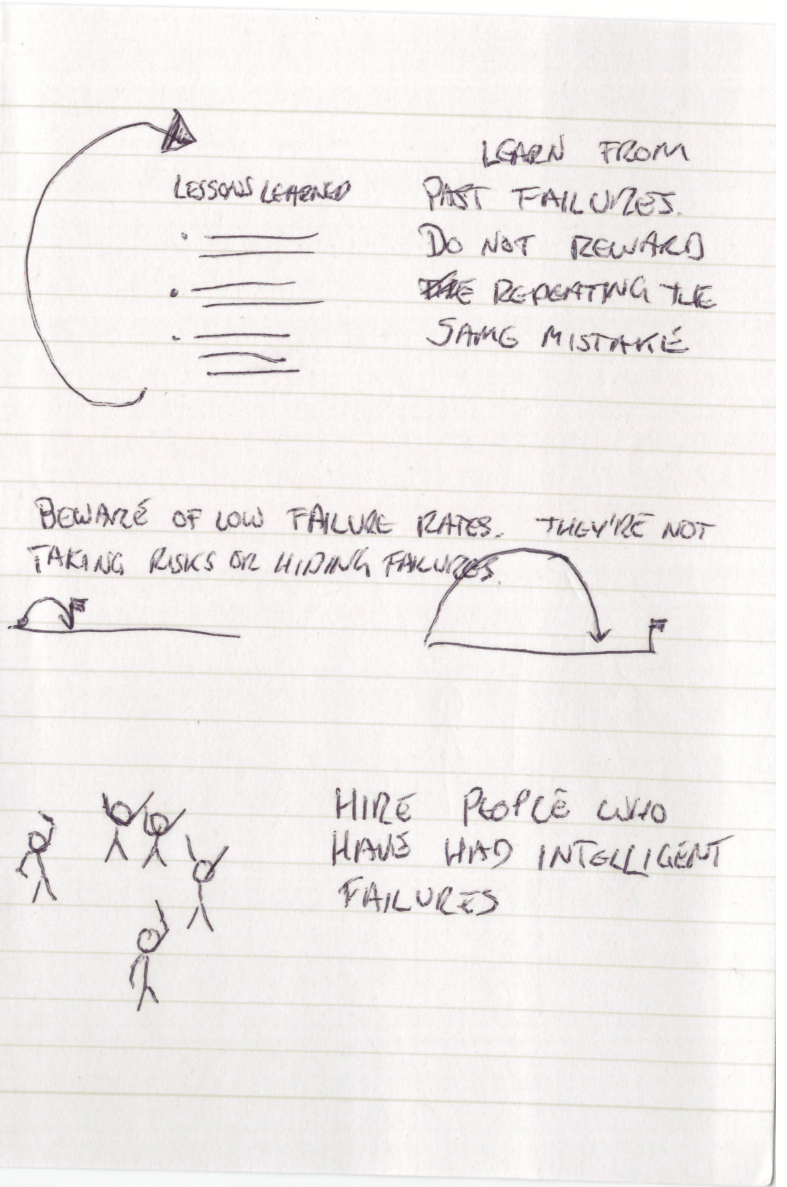 LESSONS LEARNED
LEARN FROM
PAST FAILURES.
DO NOT REWARD
THE REPEATING THE
SAME MISTAKE
BEWARE OF LOW FAILURE RATES. THEY'RE NOT
TAKING RISKS OR HIDING FAILURES.
HIRE PEOPLE WHO
HAVE HAD INTELLIGENT
FAILURES